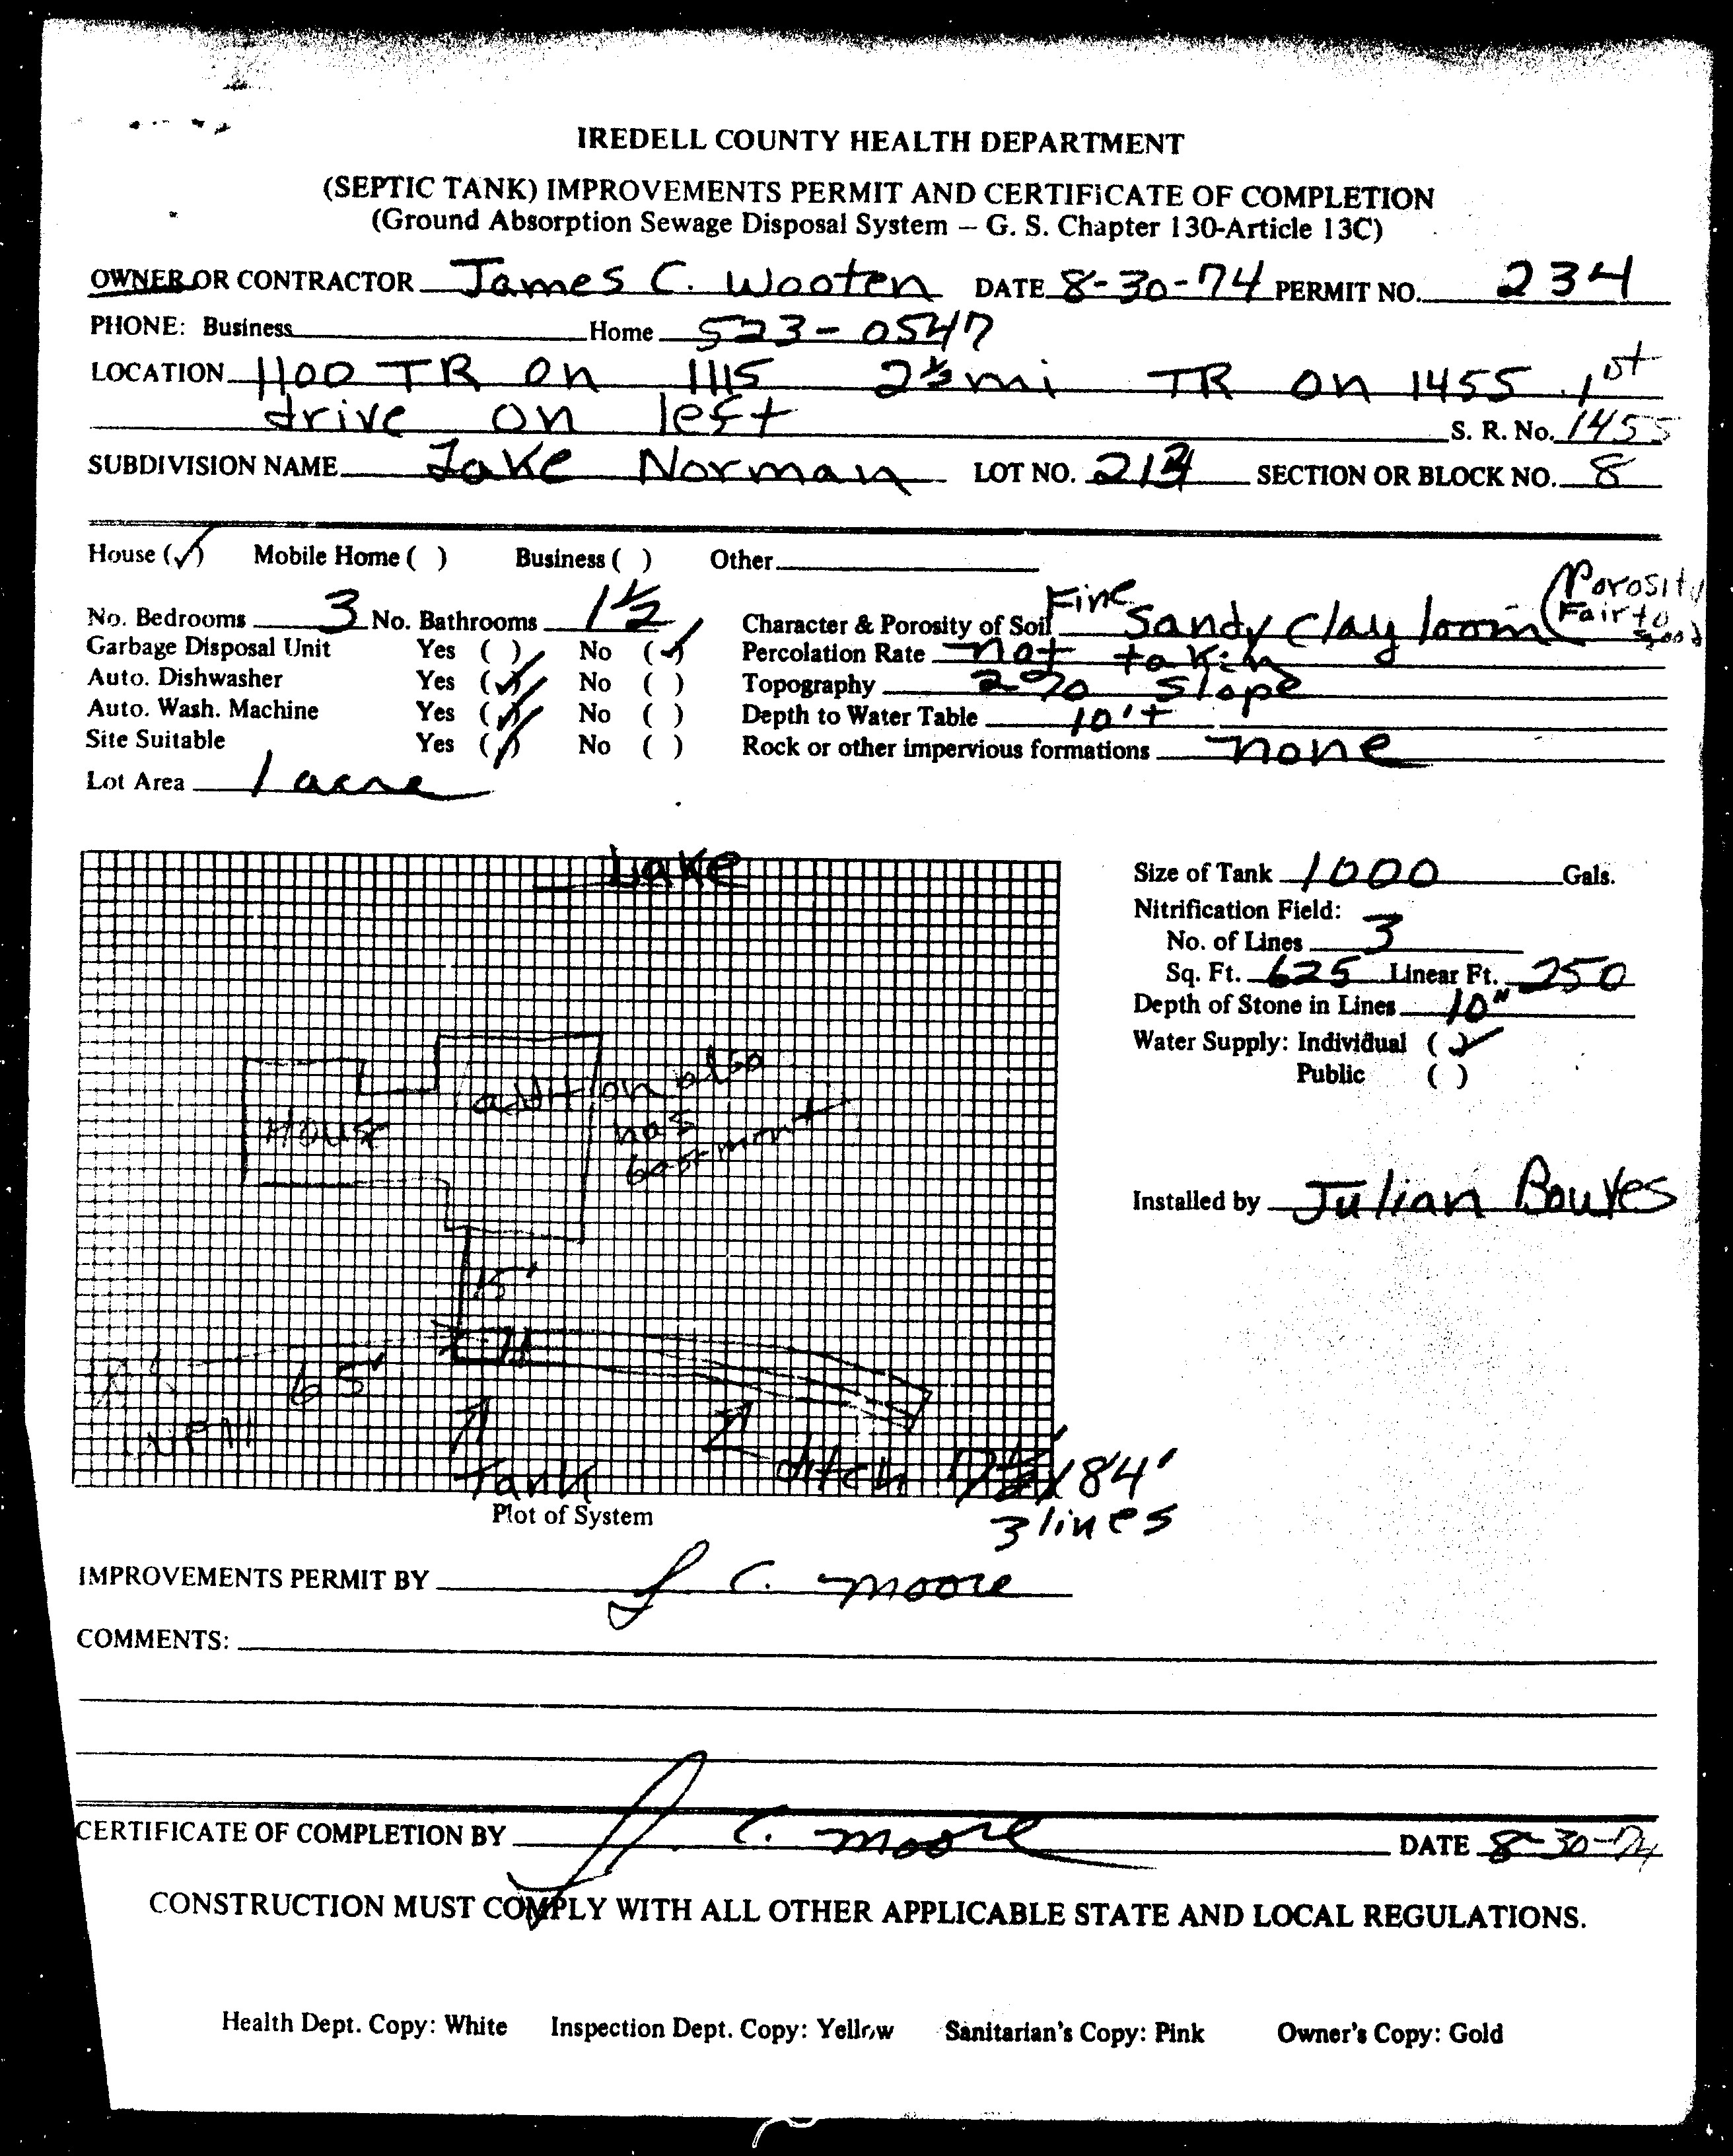 IREDELL COUNTY HEALTH DEPARTMENT
(SEPTIC TANK) IMPROVEMENTS PERMIT AND CERTIFICATE OF COMPLETION
(Ground Absorption Sewage Disposal System – G. S. Chapter 130-Article 13C)
OWNER OR CONTRACTOR James C. Wooten DATE 8-30-74 PERMIT NO. 234
PHONE: Business Home 523-0547
LOCATION 1100 TR on 1115 2½ mi TR on 1455 1st
drive on left S. R. No. 1455
SUBDIVISION NAME Lake Norman LOT NO. SECTION OR BLOCK NO. 8
House (✓) Mobile Home ( ) Business ( ) Other
No. Bedrooms 3 No. Bathrooms 1½ Character & Porosity of Soil Fine Sandy Clay loom (Porosity Fair to good
Garbage Disposal Unit Yes ( ) No (✓) Percolation Rate not takin
Auto. Dishwasher Yes (✓) No ( ) Topography 2% slope
Auto. Wash. Machine Yes (✓) No ( ) Depth to Water Table 10'+
Site Suitable Yes (✓) No ( ) Rock or other impervious formations none
Lot Area 1 acre
Lake
Size of Tank 1000 Gals.
Nitrification Field:
No. of Lines 3
Sq. Ft. 625 Linear Ft. 250
Depth of Stone in Lines 10"
Water Supply: Individual (✓)
Public ( )
House
addition also
has
basement
Installed by Julian
15'
65'
Tank
ditch 84'
3 lines
Plot of System
IMPROVEMENTS PERMIT BY J C. Moore
COMMENTS:
CERTIFICATE OF COMPLETION BY J C. Moore DATE 8-30-74
CONSTRUCTION MUST COMPLY WITH ALL OTHER APPLICABLE STATE AND LOCAL REGULATIONS.
Health Dept. Copy: White Inspection Dept. Copy: Yellow Sanitarian's Copy: Pink Owner's Copy: Gold